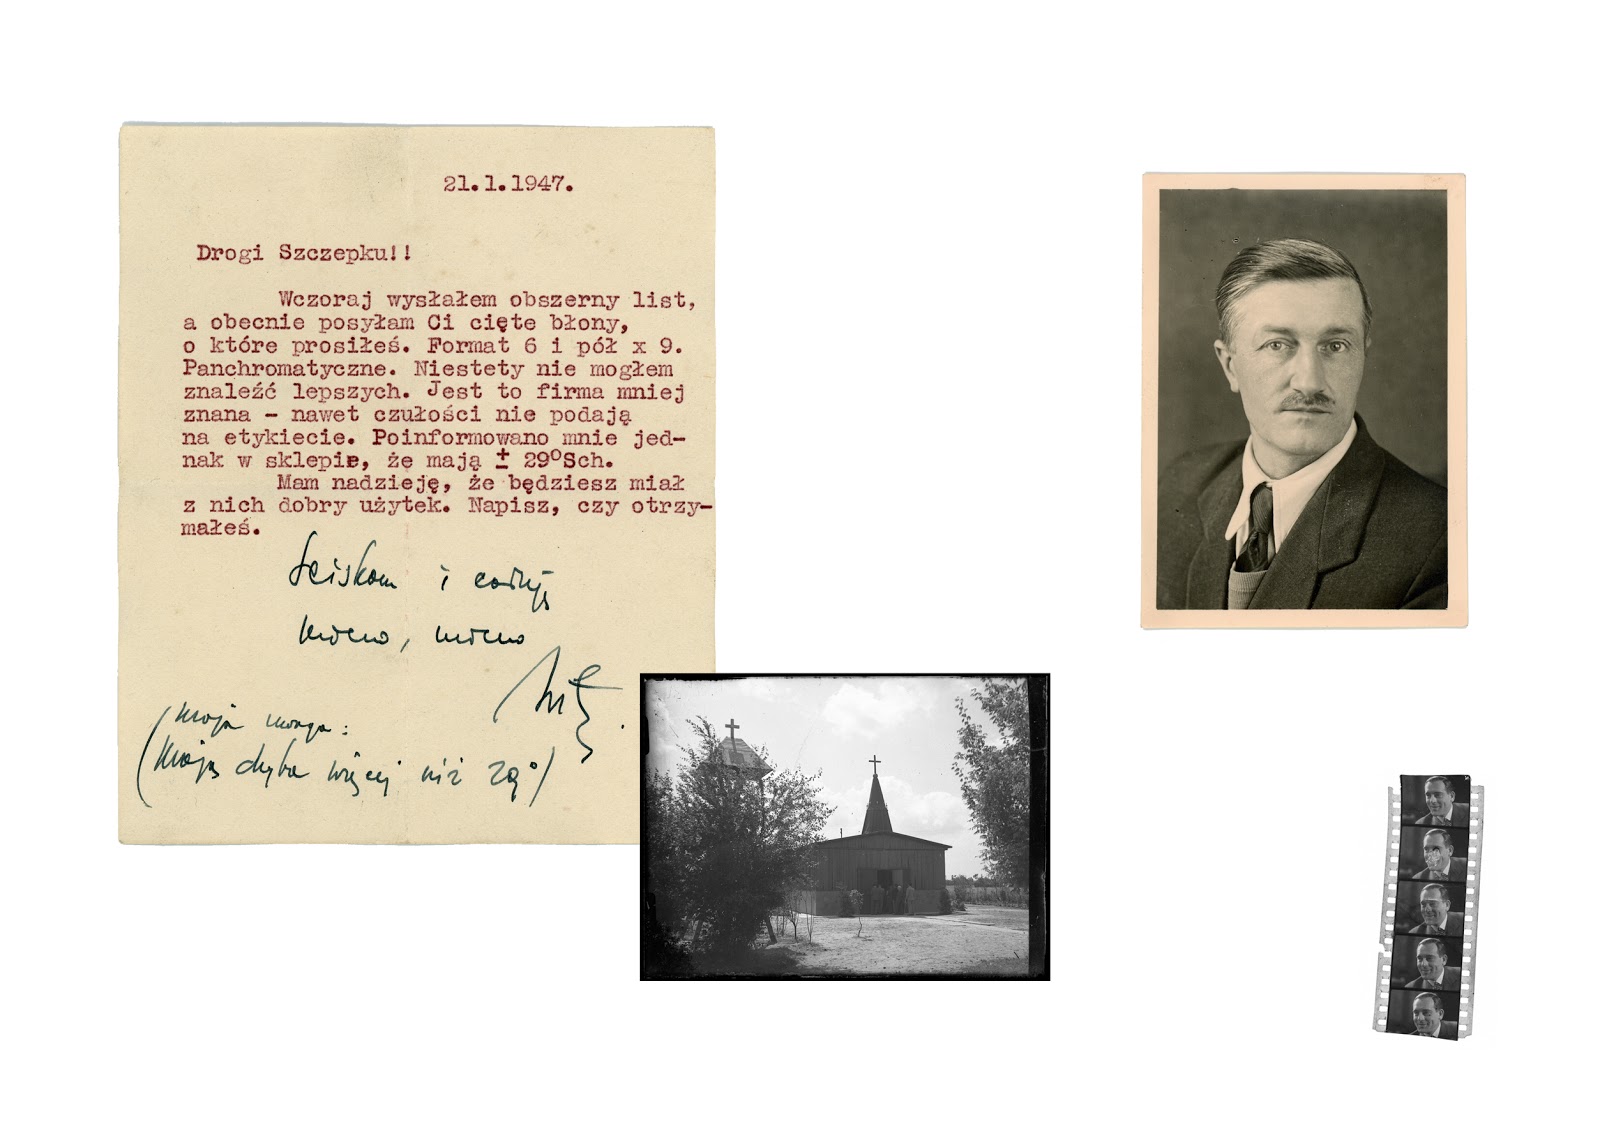 21.1.1947.
Drogi Szczepku!!
Wczoraj wysłałem obszerny list,
a obecnie posyłam Ci cięte błony,
o które prosiłeś. Format 6 i pół x 9.
Panchromatyczne. Niestety nie mogłem
znaleźć lepszych. Jest to firma mniej
znana - nawet czułości nie podają
na etykiecie. Poinformowano mnie jed-
nak w sklepie, że mają ± 29°Sch.
Mam nadzieję, że będziesz miał
z nich dobry użytek. Napisz, czy otrzy-
małeś.
Ściskam i całuję
mocno, mocno
(moja uwaga:
(Mają chyba więcej niż